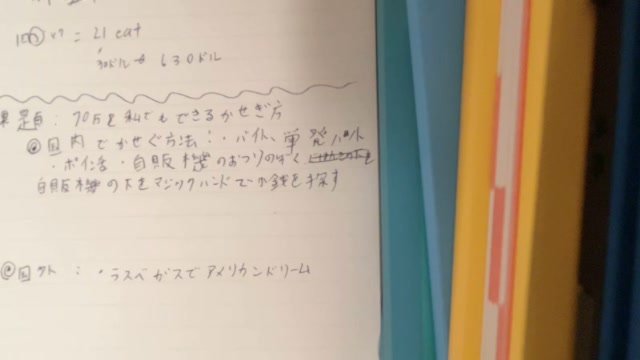 = 21 cat
30ドル → 630ドル
課題点 : 70万を私でもできるかせぎ方
◎国内でかせぐ方法 : ・バイト、単発バイト
・ポイ活 ・自販機のおつりのぞく
自販機の下をマジックハンドで小銭を探す
◎国外 : ・ラスベガスでアメリカンドリーム